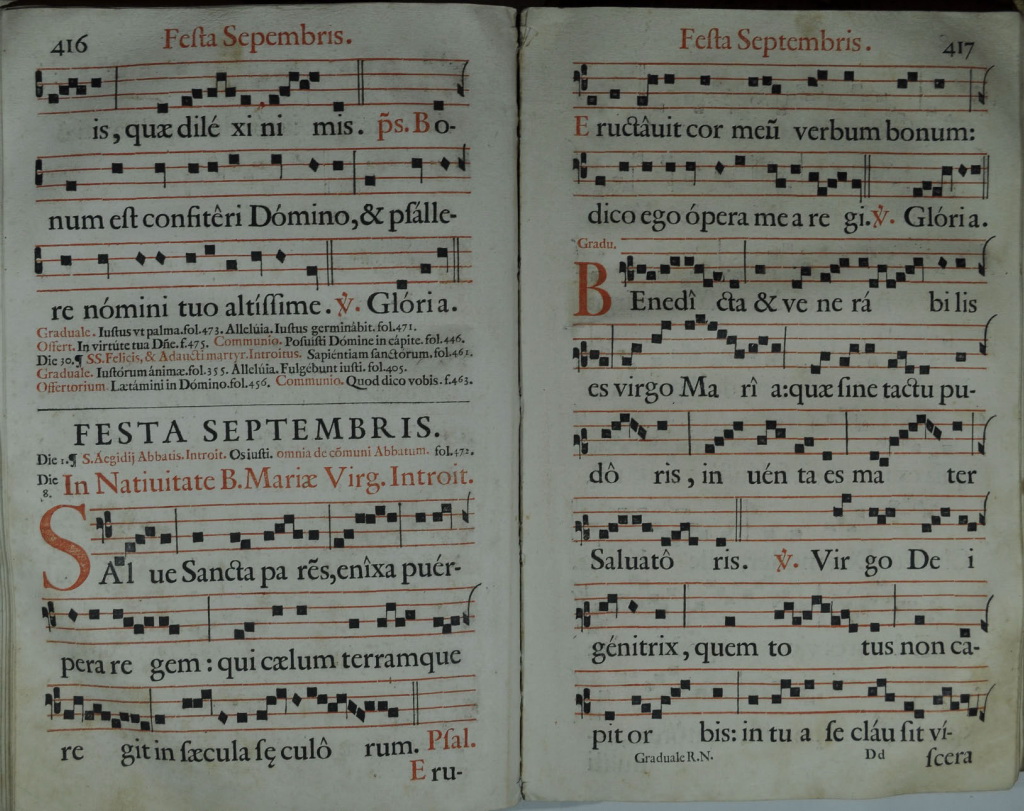 416
Feſta Sepembris.
is, quæ dilé xi ni mis. p̃s. Bo-
num eſt confitêri Dómino, & pſálle-
re nómini tuo altíſſime. ℣. Glória.
Graduale. Iuſtus vt palma. fol. 473. Allelúia. Iuſtus germinâbit. fol. 471.
Offert. In virtúte tua Dñe. f. 475. Communio. Poſuiſti Dómine in cápite. fol. 446.
Die 30. ¶ SS. Felicis, & Adaucti martyr. Introitus. Sapiéntiam ſanctórum. fol. 461.
Graduale. Iuſtórum ánimæ. fol. 355. Alleluia. Fulgébunt iuſti. fol. 405.
Offertorium. Lætámini in Dómino. fol. 456. Communio. Quod dico vobis. f. 463.
FESTA SEPTEMBRIS.
Die 1. ¶ S. Aegidij Abbatis. Introit. Os iuſti. omnia de cõmuni Abbatum. fol. 472.
Die 8. In Natiuitate B. Mariæ Virg. Introit.
SAl ue Sancta pa rẽs, enîxa puér-
pera re gem : qui cælum terramque
re git in ſæcula ſę culô rum. Pſal.
Eru-
Feſta Septembris.
417
Eructâuit cor meũ verbum bonum:
dico ego ópera mea re gi. ℣. Glória.
Gradu.
BEnedî cta & ve ne rá bilis
es virgo Ma rî a: quæ ſine tactu pu-
dô ris, in uén ta es ma ter
Saluatô ris. ℣. Vir go De i
génitrix, quem to tus non ca-
pit or bis: in tu a ſe cláu ſit ví-
Graduale R.N.
Dd
ſcera